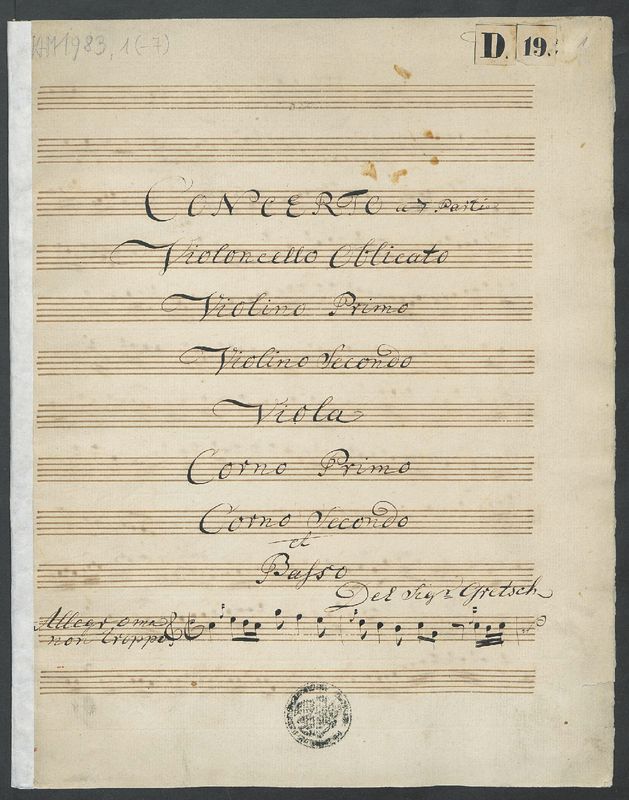 KHM1983, 1(-7)
D. 19.
CONCERTO a 7 Parti
Violoncello Oblicato
Violino Primo
Violino Secondo
Viola
Corno Primo
Corno Secondo
et
Baſso
Del Sigr Gretsch
Allegro ma
non troppo